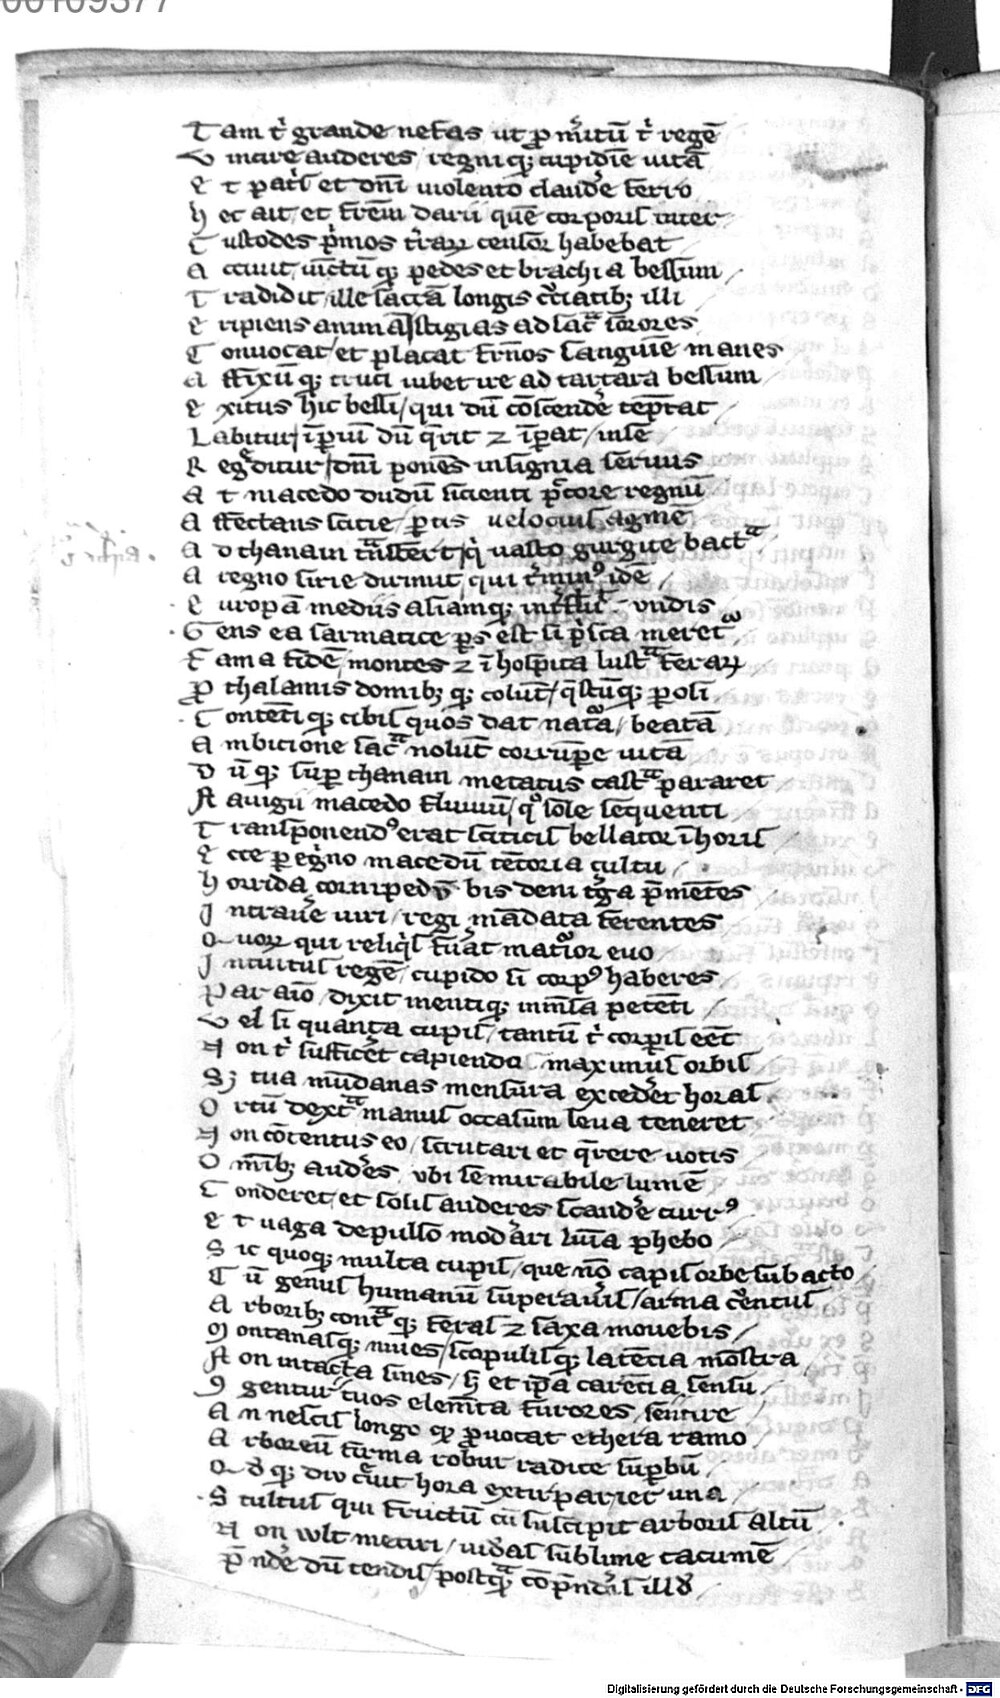 00109377
T am t͛ grande nefas ut ꝓ m͛itū t͛ regē
V iuere auderes / regniqꝫ cupidīe uitā
E t pat͛s et dn̄i uiolento claud͛e ferro
H ec ait / et fr̄em darii quē corporis inter
C ustodes p͛mos t͛raꝝ censor habebat
A cciuit / uīctū qꝫ pedes et brachia bessum
T radidit / ille sac͛a longis c͛ciatibꝫ illi
E ripiens animā / stigias ad sac͛a sorores
C onuocat / et placat fr̄nos sanguīe manes
A ffixū qꝫ cruci iubet ire ad tartara bessum
E xitus hic bessi / qui dū cōscend͛e tēptat
L abitur / īperiū dū q̄rit ⁊ īperat / inse
R egditur / dn̄i ponēs insignia seruus
A t macedo dudū sicienti pectore regnū
A ffectans scitie / ptis uelocius agmē
A d thanain t͛nsfert / q͛ uasto gurgite bact͛a
A regno sirie dirimit / qui t͛minꝰ idē
E uropā mediis asiamqꝫ int͛fluit undis
G ens ea sarmatice ps est si p͛sca meret͛
F ama fidē / montes ⁊ ī hospita lust͛a feraꝝ
P ro thalamis domibꝫ qꝫ colūt / q̄stūqꝫ ꝑosi
C ontēti qꝫ cibis quos dat nat͛a / beatā
A mbicione sac͛a nolūt corrūpe uitā
D ū qꝫ suꝑ thanain metatus cast͛a pararet
N auigii macedo fluuiū / q͛ sole sequenti
T ransponendꝰ erat sciticis bellator ī horis
E cce ꝑegͦno macedū tētoria cultu
H orrida cornipedū bis deni t͛ga p̄mētes
I ntraue͛ uiri / regi mādata ferentes
Q uoꝝ qui reliq͛s fuāt matͦior euo
I ntuitus regē / cupido si corpꝰ haberes
P ar aīo / dixit mentiqꝫ inmēsa petēti
V el si quanta cupis / tantū t͛ corꝑis eēt
N on t͛ sufficet͛ capiendo maximus orbis
Sꝫ tua mūdanas mensura exced͛et horas
O rtū dext͛a manus occasum leua teneret
N on cōtentus eo / scrutari et q̄rere uotis
O mībꝫ aud͛es / ubi se mirabile lumē
C onderet / et solis auderes scand͛e currꝰ
E t uaga depulso mod͛ari lumīa phebo
S ic quoqꝫ multa cupis / que nō capis orbe subacto
C ū genus humanū superau͛is / arma c͛entus
A rboribꝫ cont͛a qꝫ feras ⁊ saxa mouebis
M ontanasqꝫ niues / scopulisqꝫ latētia mōstra
N on intacta sines / sꝫ et ip̄a carētia sensu
C gentur tuos elemēta furores / sentire
A n nescis longo qꝫ ꝓuocat ethera ramo
A rboreū firma robur radice suꝑbū
Q ꝺ qꝫ diu c͛uit hora extirpariet͛ una
S tultus qui fructū cū suscipit arboris altū
N on wlt metiri / uid͛as sublime cacumē
P̄ nd͛e dū tendis / postqꝫ cōp̄nd͛is illū
Digitalisierung gefördert durch die Deutsche Forschungsgemeinschaft - DFG